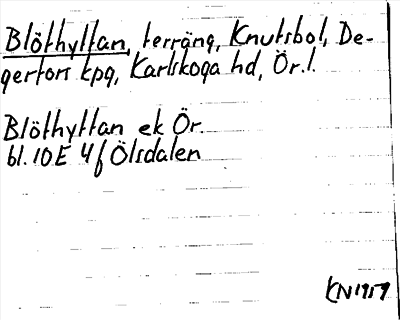 Blöthyttan, terräng, Knutsbol, De-
gerfors kpg, Karlskoga hd, Ör. l.
Blöthyttan ek Ör.
bl. 10E 4f Ölsdalen
KN 1959